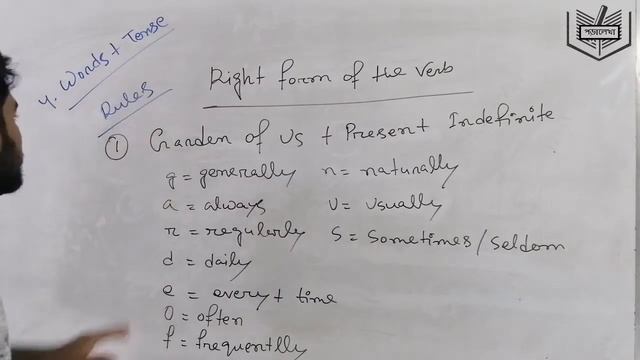 4. Words + Tense
Rules
Right form of the Verb
① Garden of us + Present Indefinite
g = generally n = naturally
a = always u = usually
r = regularly s = sometimes / seldom
d = daily
e = every + time
o = often
f = frequentlly
পড়ালেখা